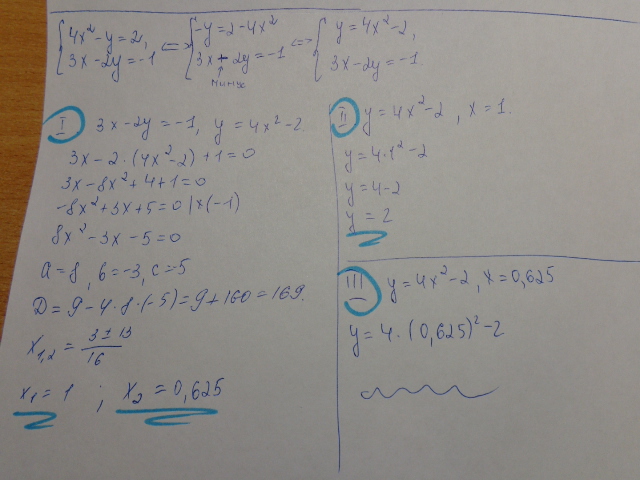 {4x²-y=2, <=> {-y=2-4x² <=> {y=4x²-2,
3x-2y=-1 3x+2y=-1 3x-2y=-1
минус
I 3x-2y=-1, y=4x²-2.
3x-2·(4x²-2)+1=0
3x-8x²+4+1=0
-8x²+3x+5=0 |×(-1)
8x²-3x-5=0
a=8, b=-3, c=-5
D=9-4·8·(-5)=9+160=169.
x₁,₂ = 3±13/16
x₁=1 ; x₂=0,625
II y=4x²-2, x=1.
y=4·1²-2
y=4-2
y=2
III y=4x²-2, x=0,625
y=4·(0,625)²-2